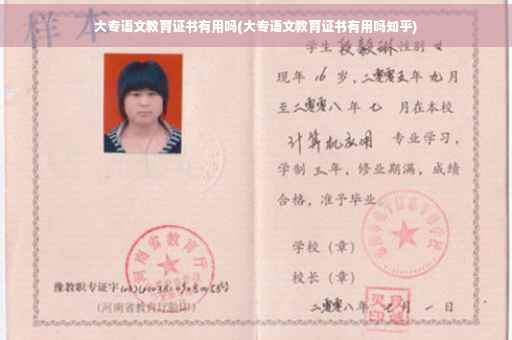 样本
大专语文教育证书有用吗(大专语文教育证书有用吗知乎)
学生 段毅琳 性别 女
现年 16 岁，二零零五年 九月
至二零零八年 七 月在本校
计算机应用 专业学习，
学制 三年，修业期满，成绩
合格，准予毕业
学校（章）
校长（章）
二零零八年 七月 一日
河南省教育厅
豫教职专证字
(河南省教育厅验印)